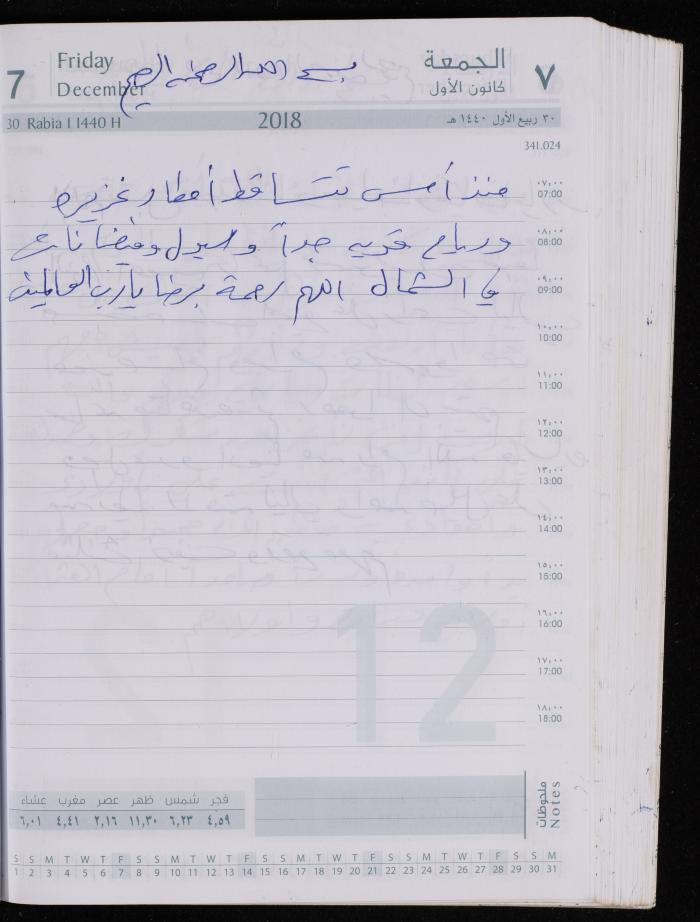 Friday
December
7
بسم الله الرحمن الرحيم
الجمعة
كانون الأول
٧
30 Rabia I 1440 H
2018
٣٠ ربيع الأول ١٤٤٠ هـ
341.024
منذ أمس تتساقط أمطار غزيره
ورياح قويه جداً وسيول وفيضانات
في الشمال اللهم رحمة برضا يا رب العالمين
٠٧,٠٠
07:00
٠٨,٠٠
08:00
٠٩,٠٠
09:00
١٠,٠٠
10:00
١١,٠٠
11:00
١٢,٠٠
12:00
١٣,٠٠
13:00
١٤,٠٠
14:00
١٥,٠٠
15:00
١٦,٠٠
16:00
١٧,٠٠
17:00
١٨,٠٠
18:00
12
فجر شمس ظهر عصر مغرب عشاء
٤,٥٩ ٦,٢٣ ١١,٣٠ ٢,١٦ ٤,٤١ ٦,٠١
ملحوظات
Notes
S S M T W T F S S M T W T F S S M T W T F S S M T W T F S S M
1 2 3 4 5 6 7 8 9 10 11 12 13 14 15 16 17 18 19 20 21 22 23 24 25 26 27 28 29 30 31